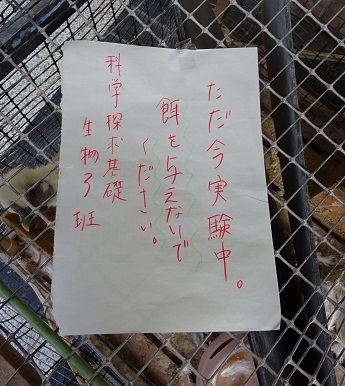 ただ今実験中。
餌を与えないで
ください。
科学探求基礎
生物3班